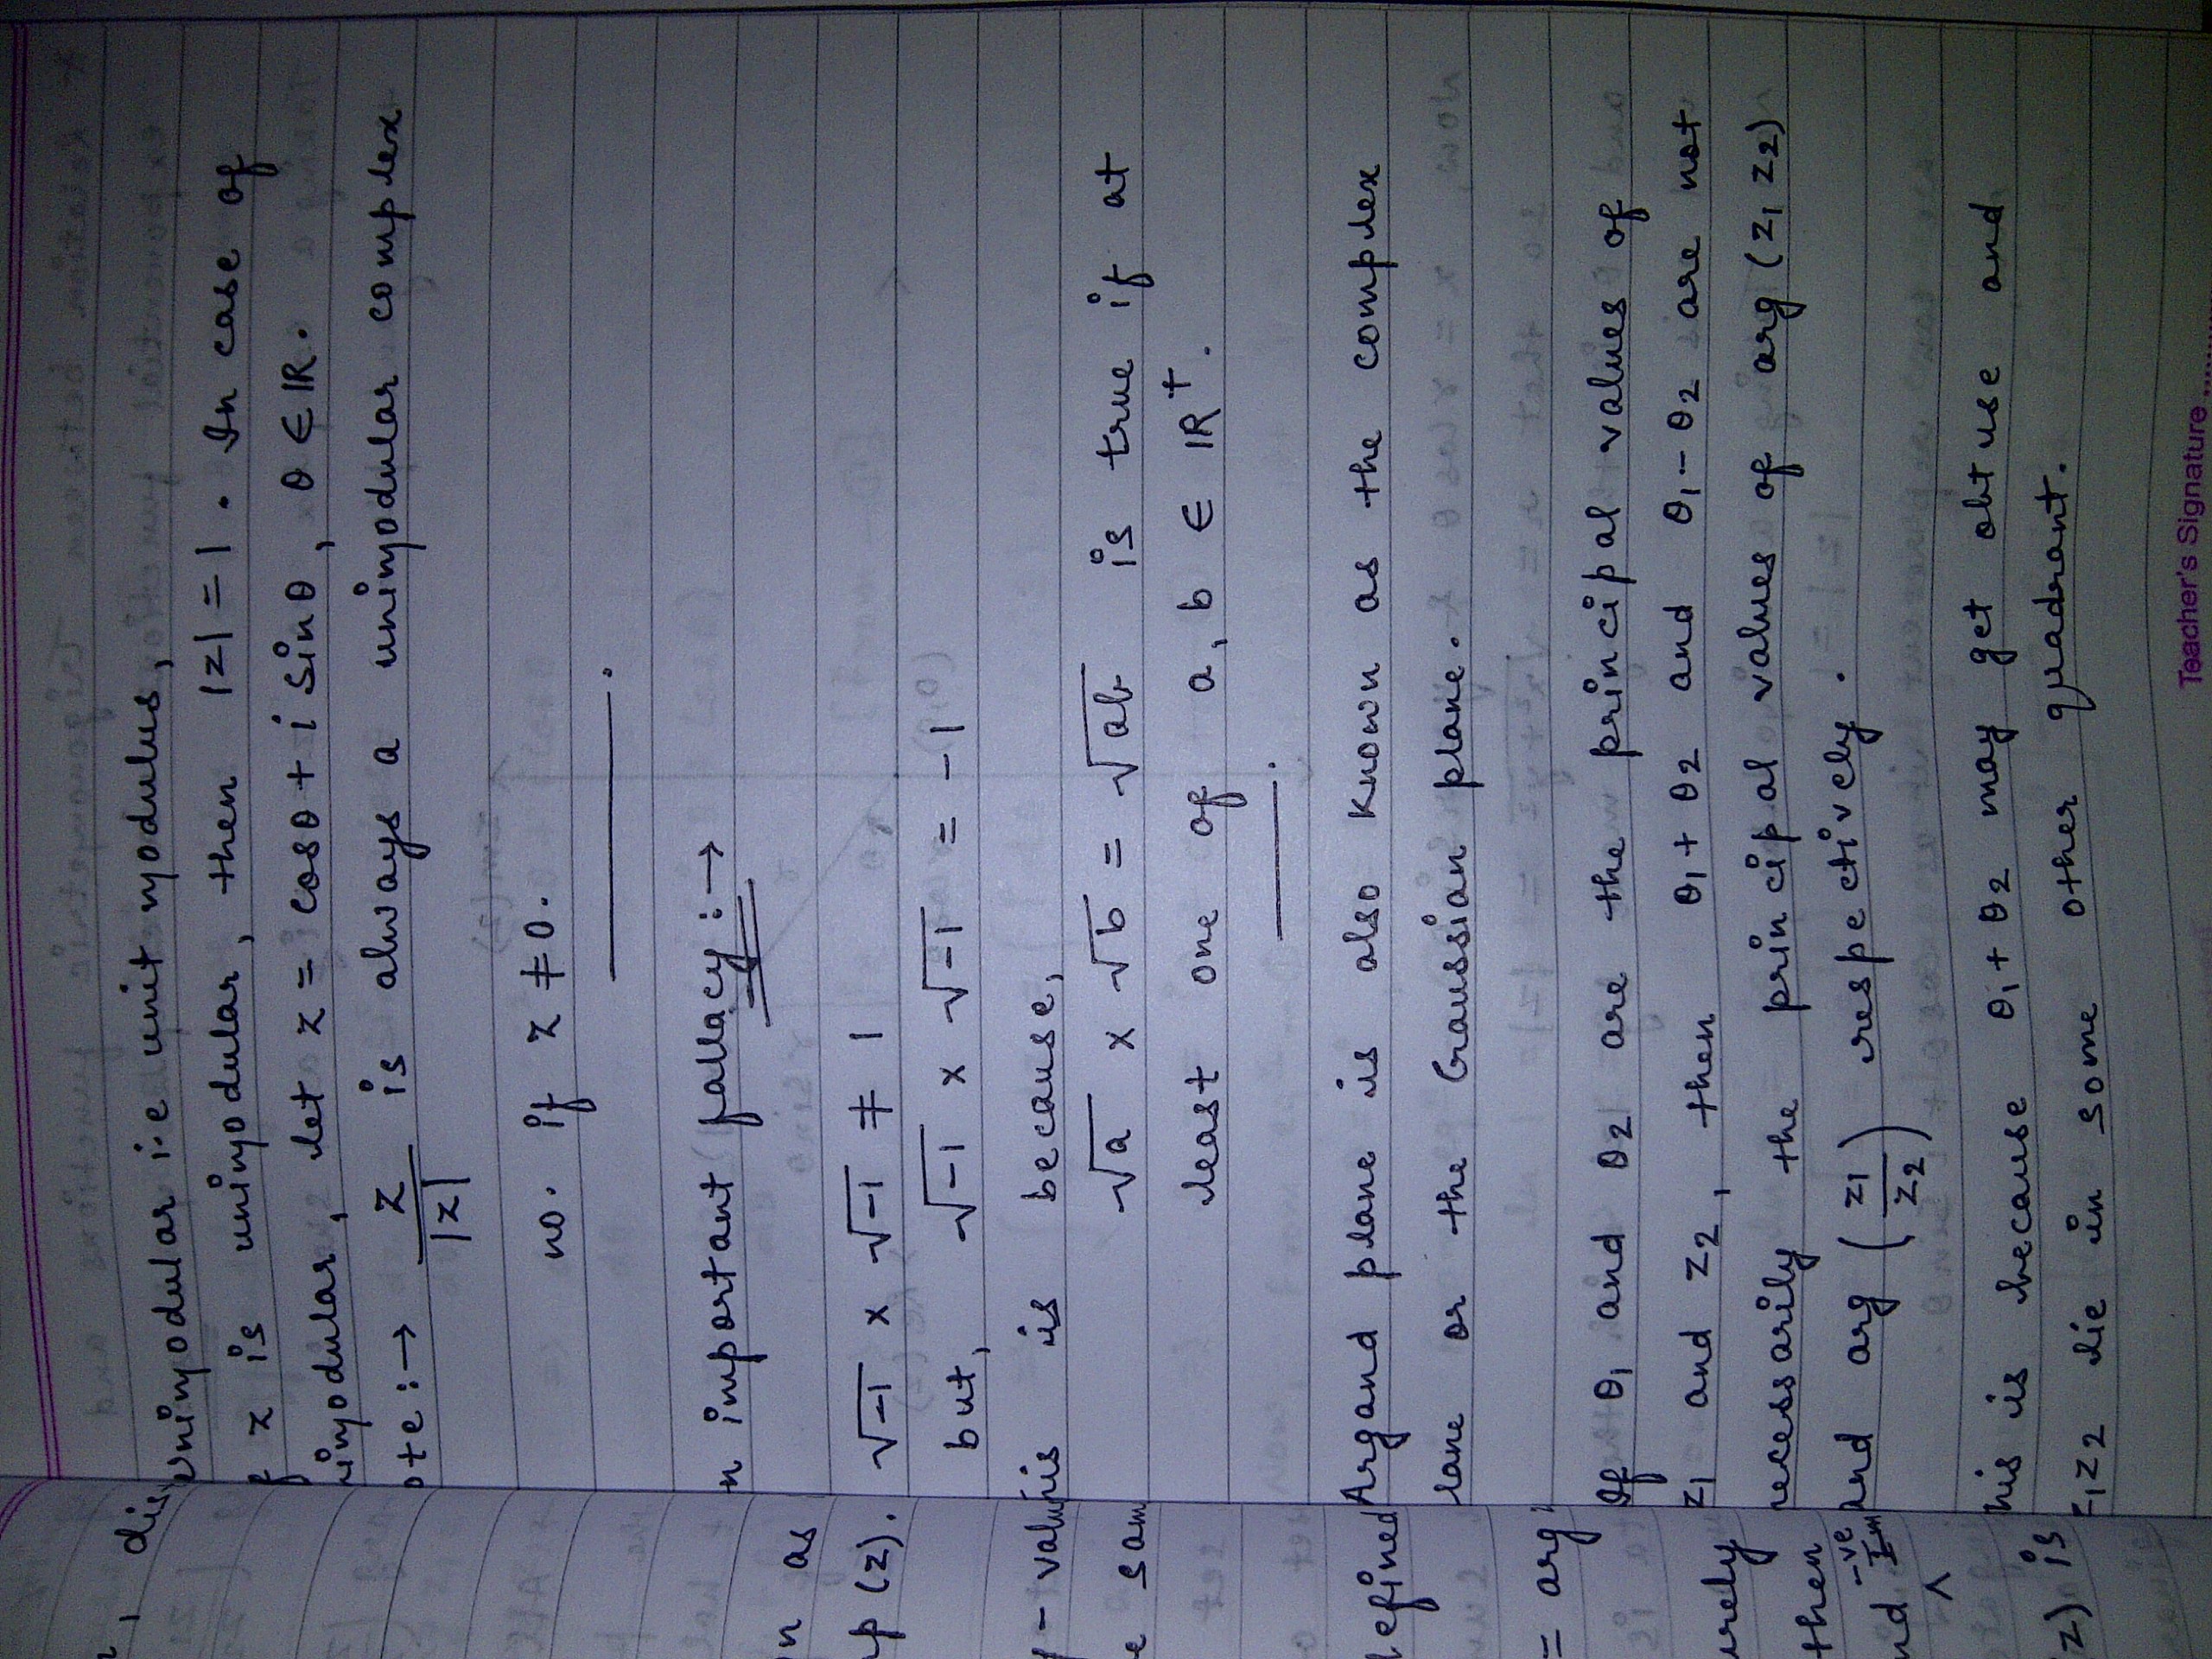 unimodular i.e unit modulus,
z is unimodular, then |z| = 1 . In case of
nimodular, let z = cosθ + i sinθ, θ ∈ ℝ.
ote :→ z/|z| is always a unimodular complex
no. if z ≠ 0.
n important fallacy :→
√-1 × √-1 ≠ 1
but, √-1 × √-1 = -1
is is because,
√a × √b = √ab is true if at
least one of a, b ∈ ℝ⁺.
Argand plane is also known as the complex
lane or the Gaussian plane.
If θ₁ and θ₂ are the principal values of
z₁ and z₂, then θ₁ + θ₂ and θ₁ - θ₂ are not
necessarily the principal values of arg (z₁ z₂)
and arg (z₁/z₂) respectively.
his is because θ₁ + θ₂ may get obtuse and
z₁z₂ lie in some other quadrant.
Teacher's Signature
dis
n as
mp (z).
y - valu
e sam
defined
= arg
urely
then
-ve
nd Im
z) is